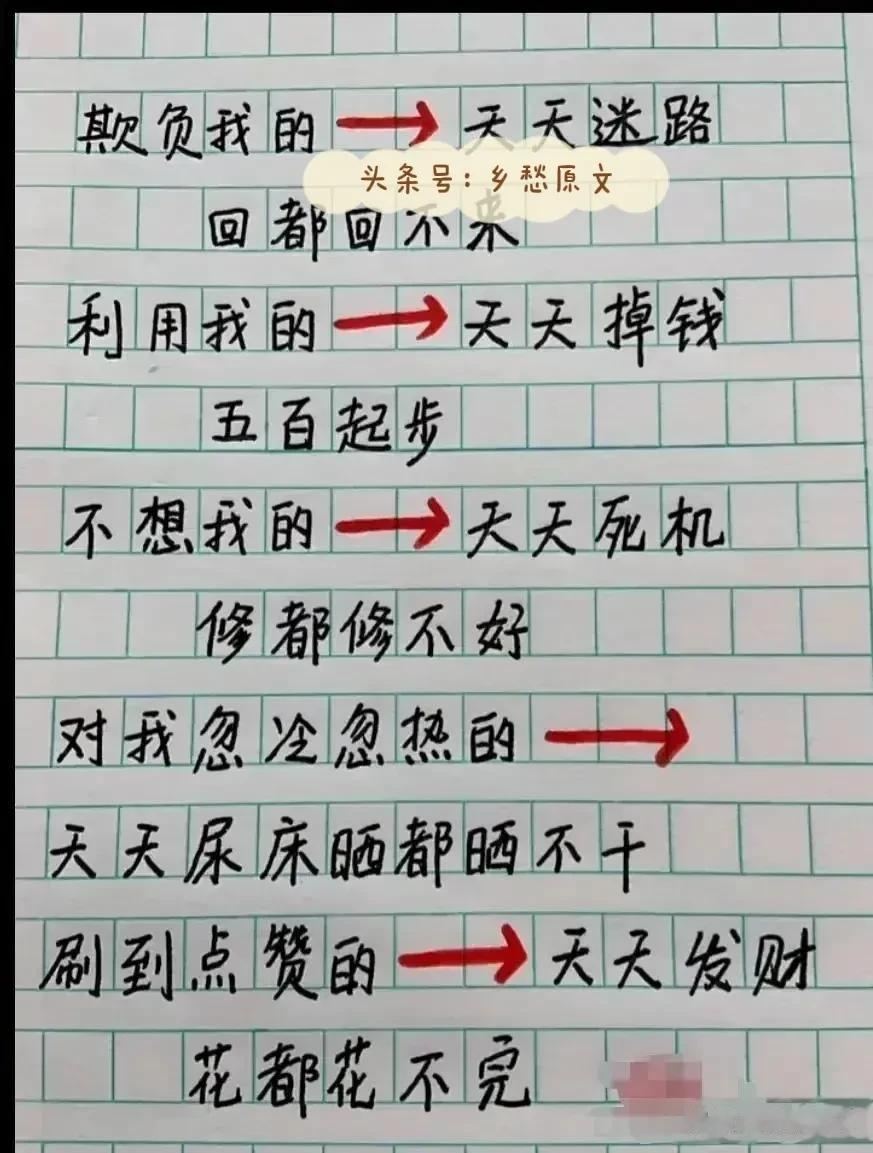 欺负我的→天天迷路
头条号:乡愁原文
回都回不来
利用我的→天天掉钱
五百起步
不想我的→天天死机
修都修不好
对我忽冷忽热的→
天天尿床晒都晒不干
刷到点赞的→天天发财
花都花不完